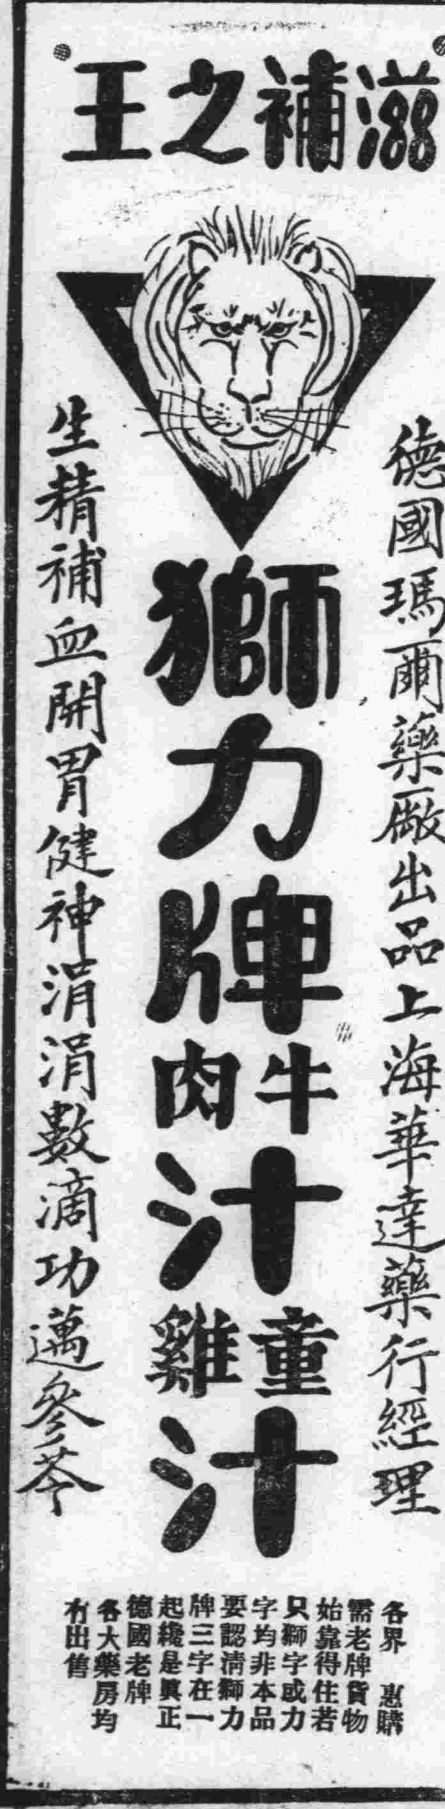 滋補之王
德國瑪爾藥厰出品上海華達藥行經理
獅力牌
牛肉汁
童雞汁
生精補血開胃健神涓涓數滴功邁參苓
各界 惠購
需老牌貨物
始靠得住若
只獅字或力
字均非本品
要認清獅力
牌三字在一
起纔是眞正
德國老牌
各大藥房均
有出售